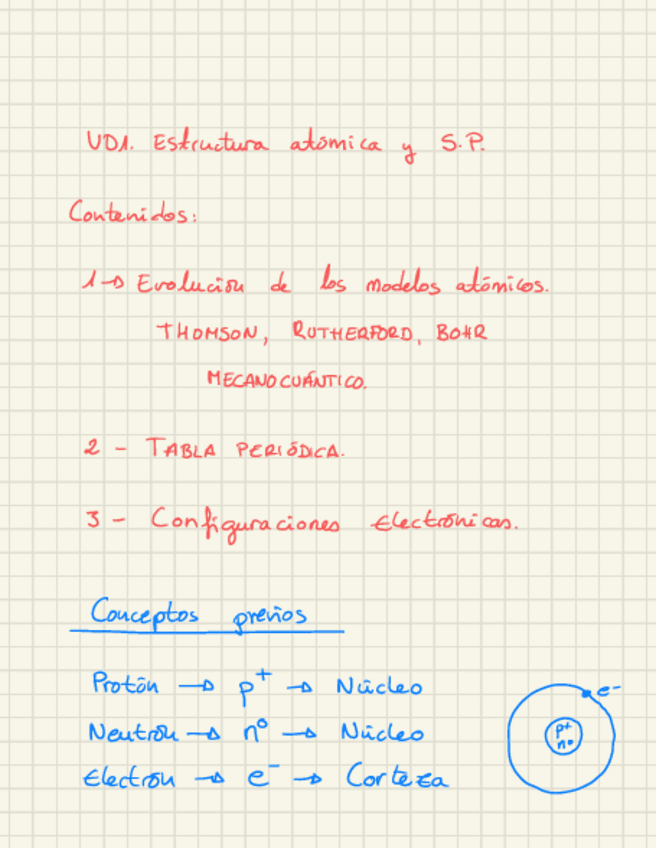 UD1. Estructura atómica y S.P.
Contenidos:
1→ Evolución de los modelos atómicos.
THOMSON, RUTHERFORD, BOHR
MECANOCUÁNTICO.
2 - TABLA PERIÓDICA.
3 - Configuraciones Electrónicas.
Conceptos previos
Protón → p⁺ → Núcleo
Neutrón → n⁰ → Núcleo
Electrón → e⁻ → Corteza
e⁻
p⁺
n⁰